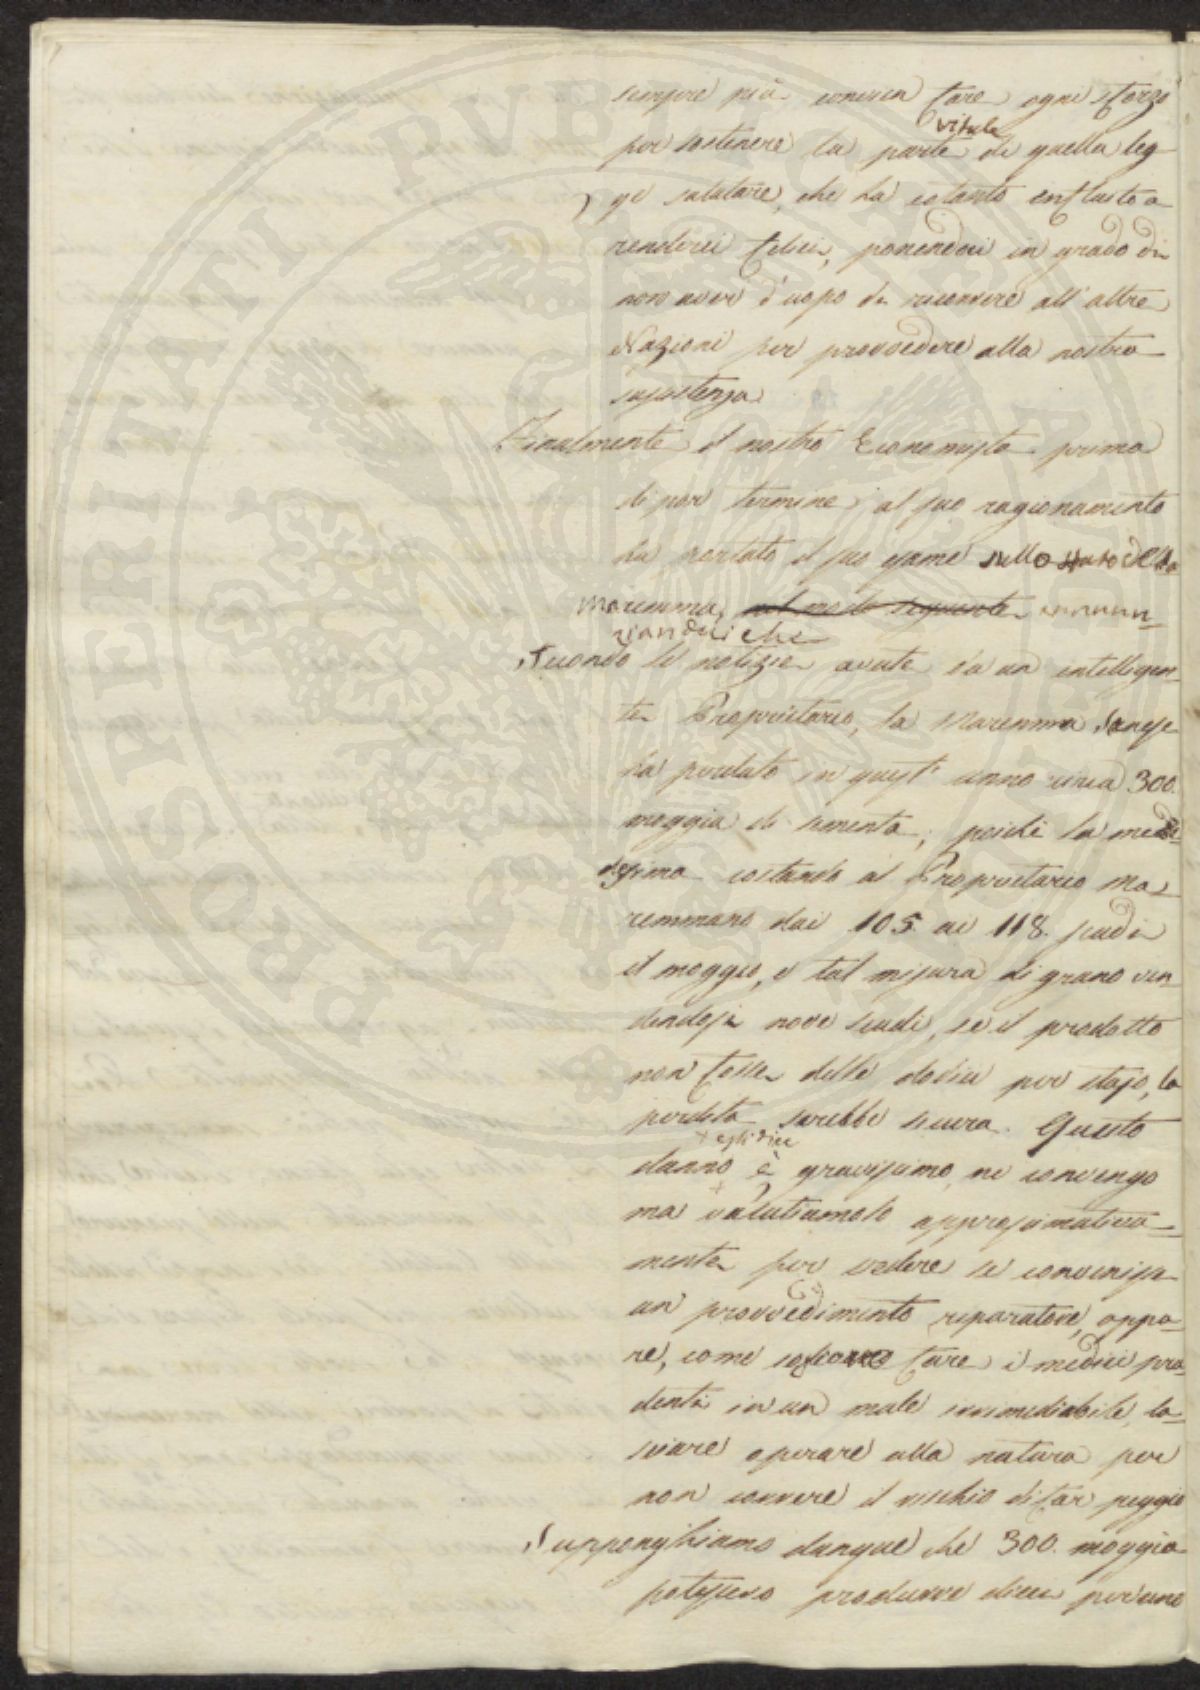 sempre più convien fare ogni sforzo
vitale
per sostenere la parte di quella leg
ge salutare, che ha cotanto influito a
renderci felici, ponendoci in grado di
non aver d'uopo di ricorrere all'altre
Nazioni per provvedere alla nostra
sussistenza
Finalmente il nostro Economista prima
di por termine al suo ragionamento
ha portato il suo esame sullo stato della
Maremma, nel modo seguente annun-
ziandoci che
Secondo le notizie avute da un intelligen-
te Proprietario, la Maremma Sanese
ha perduto in quest' anno circa 300.
moggia di sementa, poichè la mede
desima costando al Proprietario Ma-
remmano dai 105. ai 118. scudi
il moggio, e tal misura di grano ven-
dendosi nove scudi, se il prodotto
non fosse delle dodici per stajo, la
perdita sarebbe sicura. Questo
+ egli dice
danno è gravissimo, ne convengo
ma valutiamolo approssimativa-
mente per vedere se convenisse
un provvedimento reparatore, oppu-
re, come fare i medici pru-
denti in un male irrimediabile, la-
sciare operare alla natura per
non correre il rischio di far peggio
Supponghiamo dunque che 300. moggia
potessero produrre dieci per uno
PROSPERITATI PVBLICAE AVGENDAE